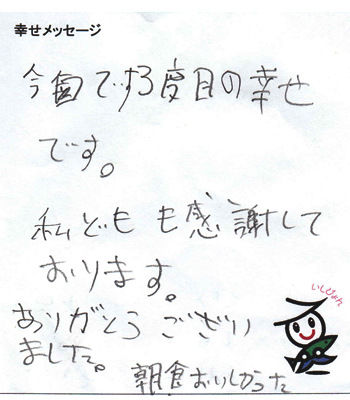 幸せメッセージ
今回で3度目の幸せ
です。
私どもも感謝して
おります。
ありがとうござい
ました。
朝食おいしかった